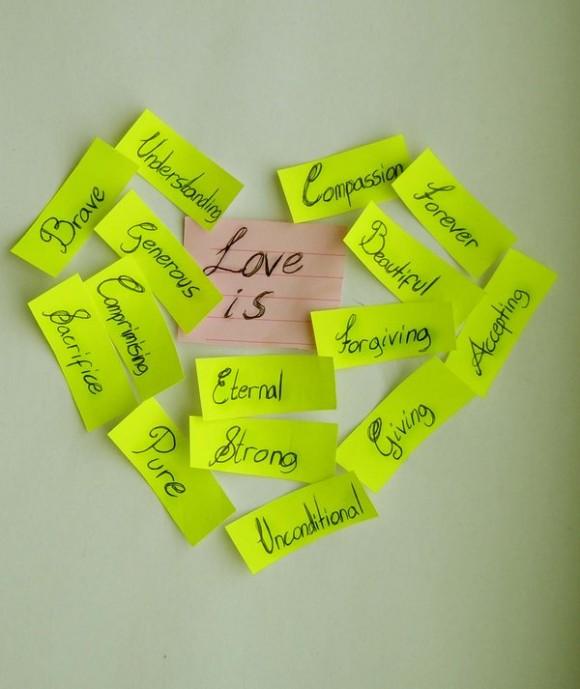 Understanding
Brave
Generous
Compassion
Forever
Beautiful
Love
is
Comprimising
Sacrifice
Forgiving
Accepting
Eternal
Giving
Strong
Pure
Unconditional